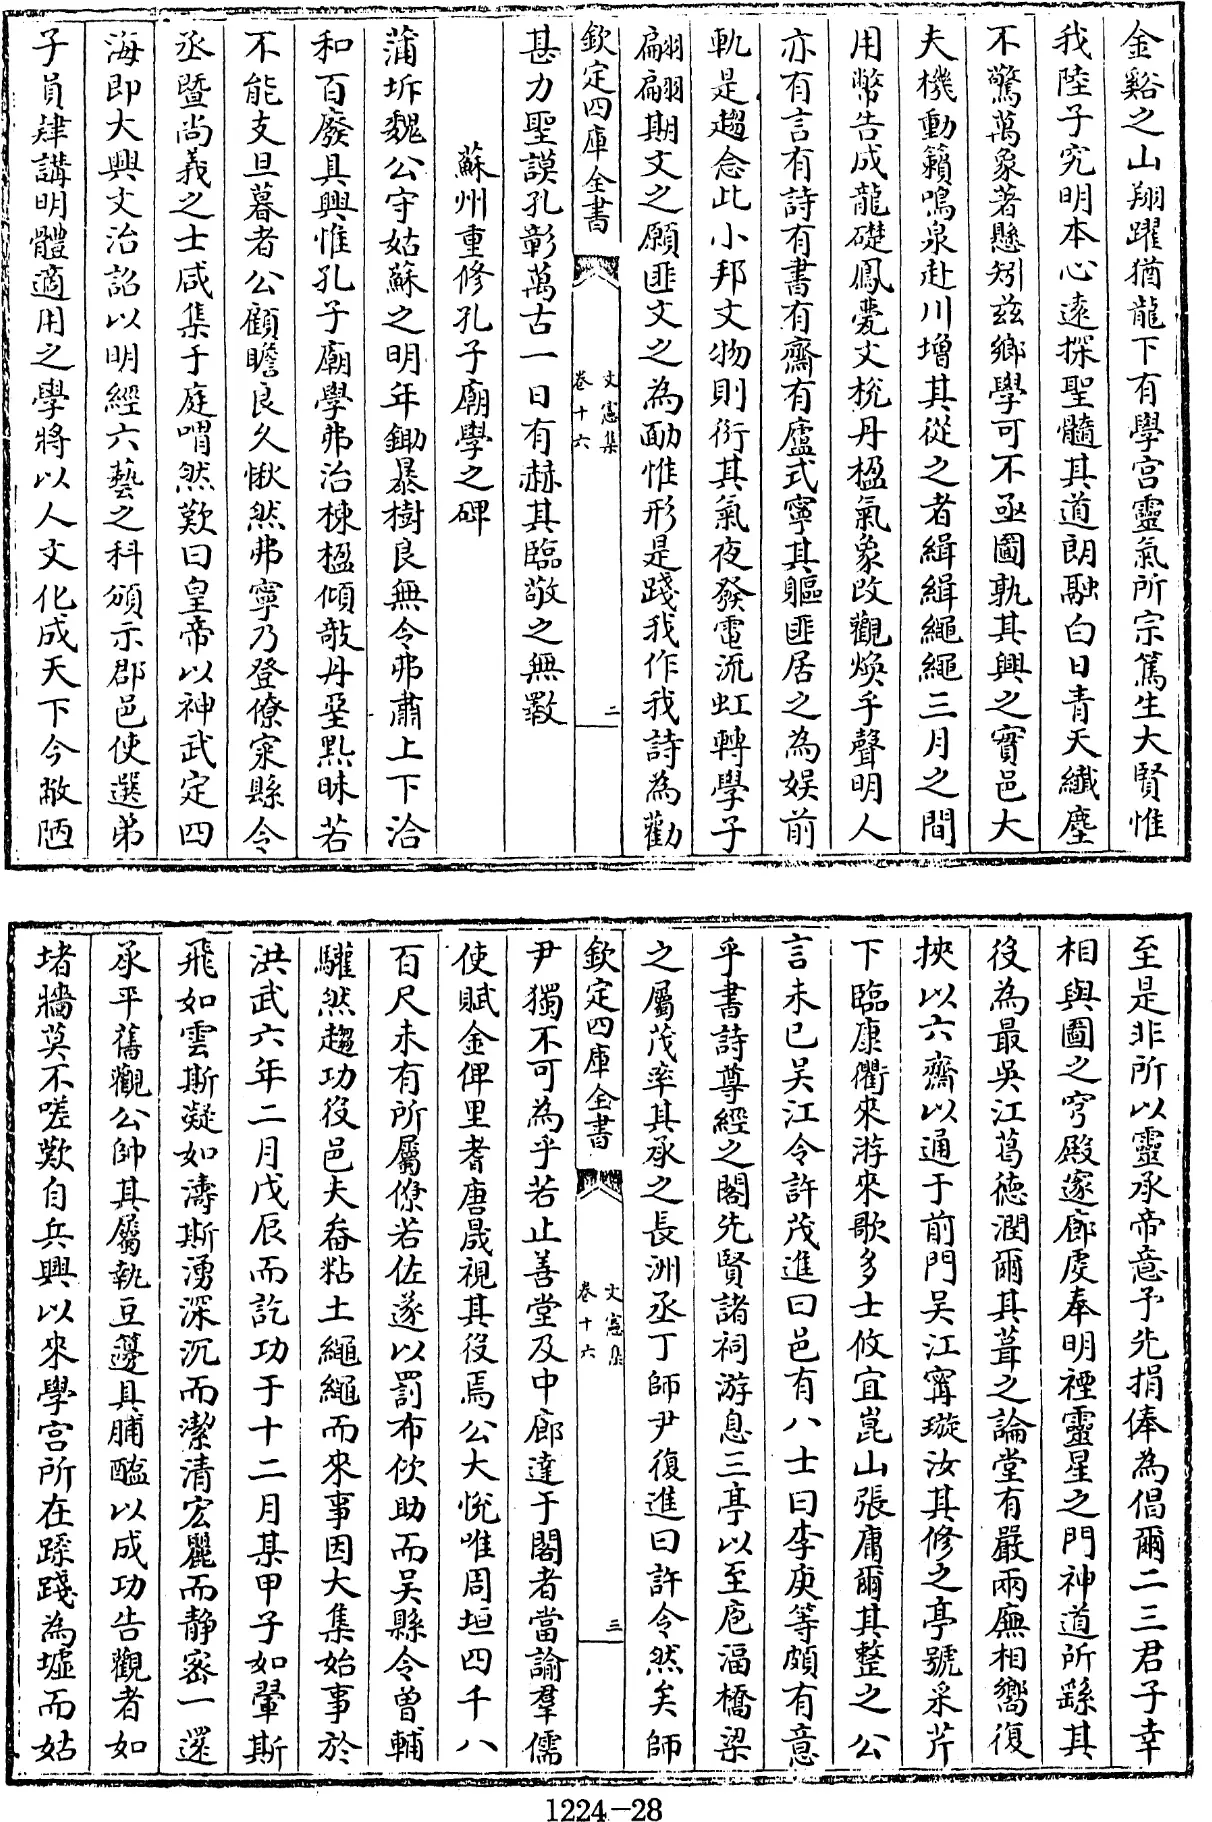 金谿之山翔躍猶龍下有學宫靈氣所宗篤生大賢惟
我陸子究明本心遠探聖髓其道朗融白日青天纖塵
不驚萬象著懸矧兹鄉學可不亟圖孰其興之實邑大
夫機動籟鳴泉赴川增其從之者緝緝繩繩三月之間
用幣告成龍礎鳳甍文㮰丹楹氣象改觀煥乎聲明人
亦有言有詩有書有齋有廬式寧其軀匪居之為娱前
軌是趨念此小邦文物則衍其氣夜發電流虹轉學子
翩翩期文之願匪文之為勔惟形是踐我作我詩為勸
欽定四庫全書
文憲集
卷十六
二
甚力聖謨孔彰萬古一日有赫其臨敬之無斁
蘇州重修孔子廟學之碑
蒲圻魏公守姑蘇之明年鋤暴樹良無令弗肅上下洽
和百廢具興惟孔子廟學弗治棟楹傾攲丹堊黠昧若
不能支旦暮者公顧瞻良久愀然弗寧乃登僚寀縣令
丞暨尚義之士咸集于庭喟然歎曰皇帝以神武定四
海即大興文治詔以明經六藝之科頒示郡邑使選弟
子員肄講明體適用之學將以人文化成天下今敝陋
至是非所以靈承帝意予先捐俸為倡爾二三君子幸
相與圖之穹殿邃廊虔奉明禋靈星之門神道所繇其
役為最吳江葛德潤爾其葺之論堂有嚴兩廡相嚮復
挾以六齋以通于前門吴江甯璇汝其修之亭號采芹
下臨康衢來游來歌多士攸宜崑山張庸爾其整之公
言未已吴江令許茂進曰邑有八士曰李庚等頗有意
乎書詩尊經之閣先賢諸祠游息三亭以至庖湢橋梁
之屬茂率其承之長洲丞丁師尹復進曰許令然矣師
欽定四庫全書
文憲集
卷十六
三
尹獨不可為乎若止善堂及中廊達于閣者當諭羣儒
使賦金俾里耆唐晟視其役焉公大悦唯周垣四千八
百尺未有所屬僚若佐遂以罰布佽助而吴縣令曾輔
驩然趨功役邑夫畚粘土繩繩而來事因大集始事於
洪武六年二月戊辰而訖功于十二月某甲子如翬斯
飛如雲斯凝如濤斯湧深沉而潔清宏麗而静宻一還
承平舊觀公帥其屬執豆籩具脯醢以成功告觀者如
堵牆莫不嗟歎自兵興以來學宫所在蹂踐為墟而姑
1224-28